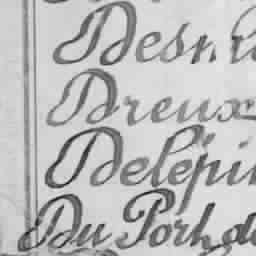 Desm
Dreux
Delépi
Du Port de